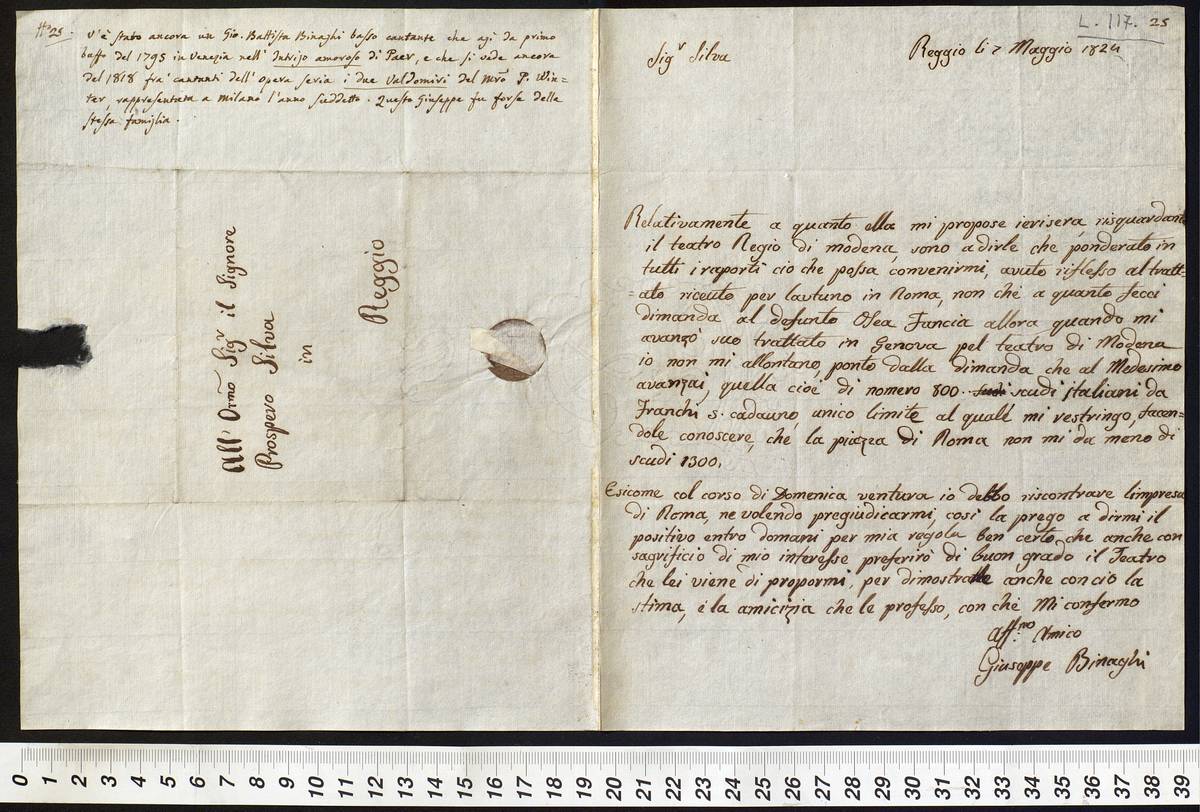 N.º 25.
V'è stato ancora un Gio. Battista Binaghi basso cantante che agì da primo
buffo del 1795 in Venezia nell'Intrigo amoroso di Paer, e che si vede ancora
del 1818 fra' cantanti dell'opera seria i due Valdomiri del Mro P. Win=
ter, rappresentata a Milano l'anno suddetto. Questo Giuseppe fu forse della
stessa famiglia.
All' Ornmo Sigr il Signore
Prospero Silva
in
Reggio
L. 117. 25
Sigr Silva
Reggio li 7 Maggio 1824
Relativamente a quanto ella mi propose ierisera, risguardante
il teatro Regio di modena, sono a dirle che ponderato in
tutti i raporti ciò che possa convenirmi, avuto riflesso al tratt=
=ato riceuto per lautuno in Roma, non chè a quanto feci
dimanda al defunto Osea Francia allora quando mi
avanzò suo trattato in Genova pel teatro di Modena
io non mi allontano, ponto dalla dimanda che al Medesimo
avanzai, quella cioè di nomero 800. scudi italiani da
Franchi 5. cadauno, unico limite al quale mi restringo, facen=
dole conoscere, chè la piazza di Roma non mi da meno di
scudi 1300.
E sicome col corso di Domenica ventura io debbo riscontrare limpresa
di Roma, ne volendo pregiudicarmi, così la prego a dirmi il
positivo entro domani per mia regola ben certo, che anche con
sagrificio di mio interesse preferirò di buon grado il Teatro
che lei viene di propormi, per dimostrarle anche con ciò la
stima, e la amicizia che le professo, con chè Mi confermo
Affmo Amico
Giuseppe Binaghi
0 1 2 3 4 5 6 7 8 9 10 11 12 13 14 15 16 17 18 19 20 21 22 23 24 25 26 27 28 29 30 31 32 33 34 35 36 37 38 39